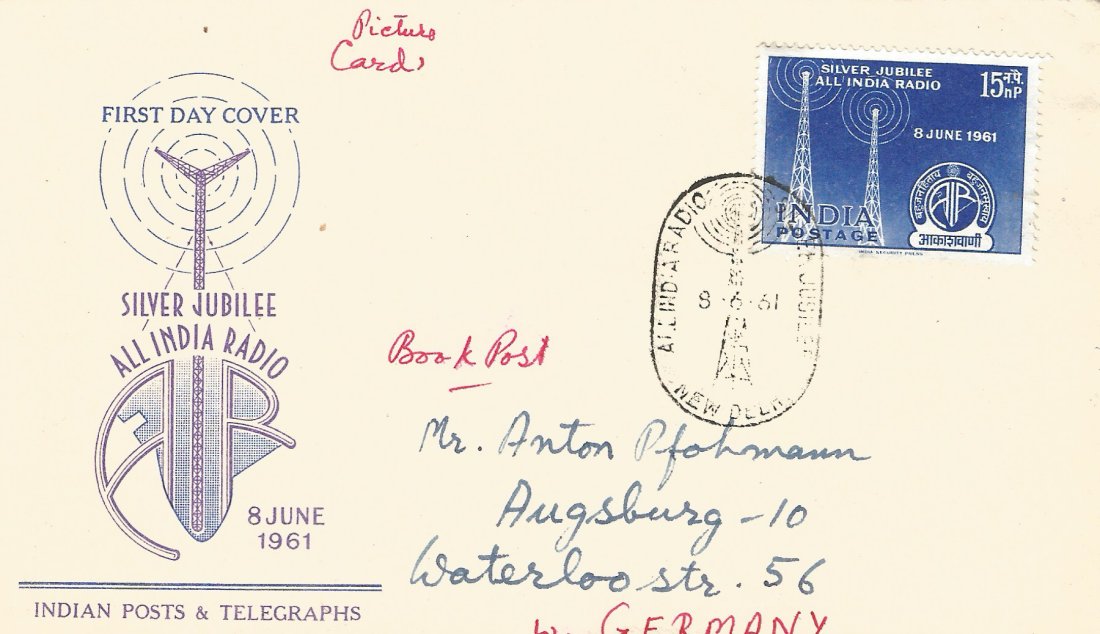 Picture
Card,
FIRST DAY COVER
SILVER JUBILEE
ALL INDIA RADIO
AIR
8 JUNE
1961
INDIAN POSTS & TELEGRAPHS
SILVER JUBILEE
ALL INDIA RADIO
15 न.पै.
nP
8 JUNE 1961
बहुजनहिताय बहुजनसुखाय
AIR
आकाशवाणी
INDIA
POSTAGE
INDIA SECURITY PRESS
ALL INDIA RADIO JUBILEE
8.6.61
NEW DELHI
Book Post
Mr. Anton Pfohmann
Augsburg-10
Waterloostr. 56
W. GERMANY